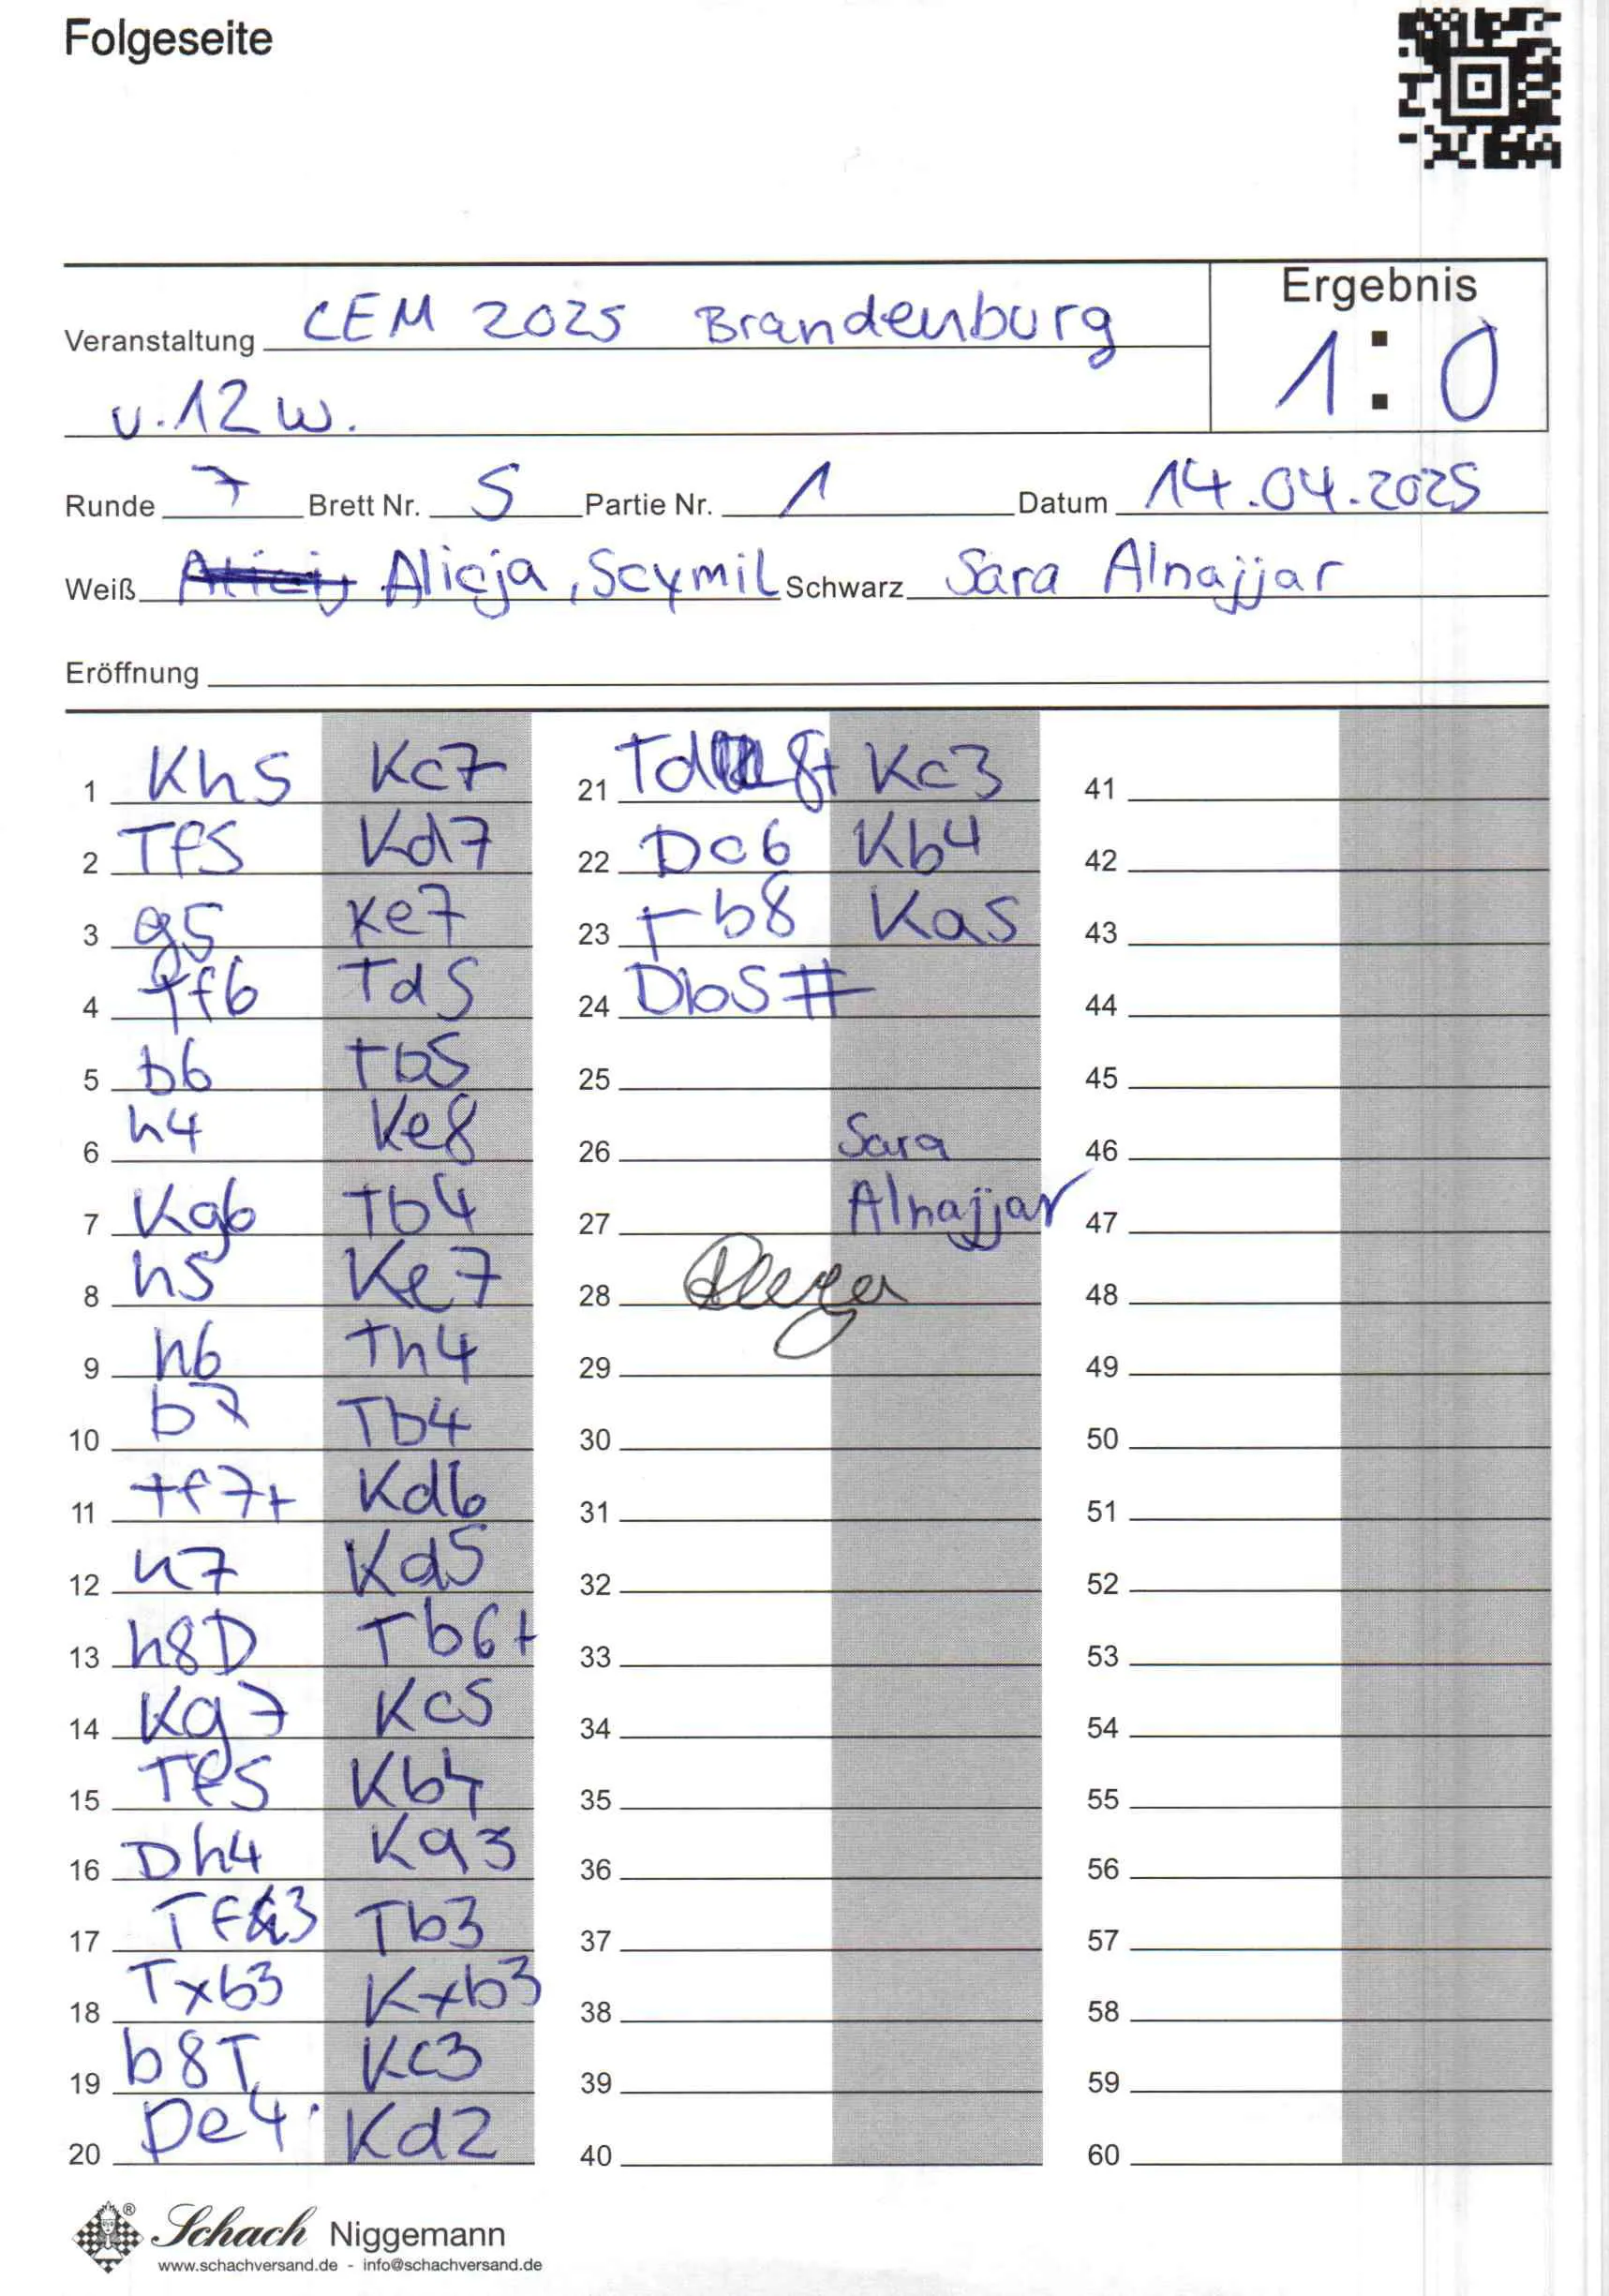 Folgeseite
Ergebnis
Veranstaltung CEM 2025 Brandenburg
1:0
u.12 w.
Runde 7 Brett Nr. 5 Partie Nr. 1 Datum 14.04.2025
Weiß Alicja, Scymil Schwarz Sara Alnajjar
Eröffnung
1 Kh5 Kc7
2 Tf5 Kd7
3 g5 Ke7
4 Tf6 Td5
5 b6 Tb5
6 h4 Ke8
7 Kg6 Tb4
8 h5 Ke7
9 h6 Th4
10 b7 Tb4
11 Tf7+ Kd6
12 h7 Kd5
13 h8D Tb6+
14 Kg7 Kc5
15 Tf5 Kb4
16 Dh4 Ka3
17 Tf3 Tb3
18 Txb3 Kxb3
19 b8T Kc3
20 De4 Kd2
21 Td8+ Kc3
22 Dc6 Kb4
23 Tb8 Ka5
24 Db5#
25
26 Sara
27 Alnajjar
28
29
30
31
32
33
34
35
36
37
38
39
40
41
42
43
44
45
46
47
48
49
50
51
52
53
54
55
56
57
58
59
60
Schach Niggemann
www.schachversand.de - info@schachversand.de